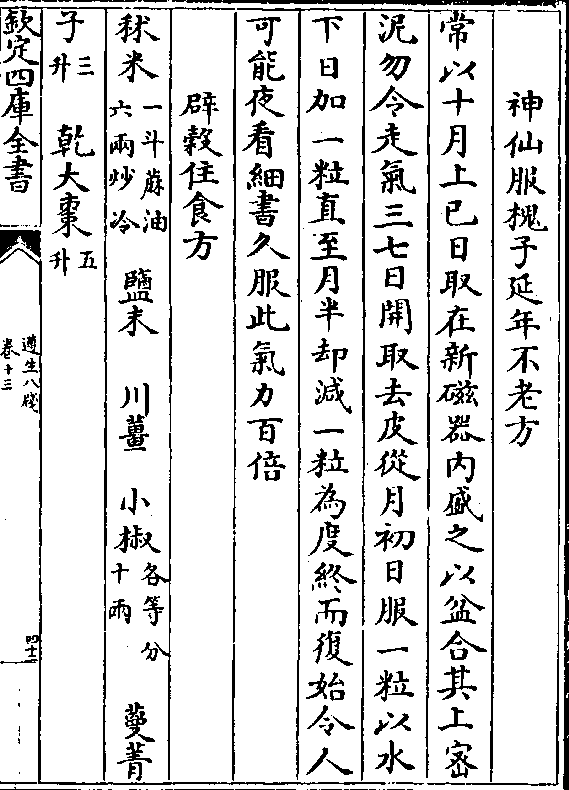 神仙服槐子延年不老方
常以十月上巳日取在新磁器內盛之以盆合其上密
泥勿令走氣三七日開取去皮從月初日服一粒以水
下日加一粒直至月半却減一粒為度終而復始令人
可能夜看細書久服此氣力百倍
辟穀住食方
秫米一斗蔴油六兩炒冷 鹽末 川薑 小椒各等分十兩 蔓菁
子三升 乾大棗五升
欽定四庫全書
遵生八牋
卷十三
四十二